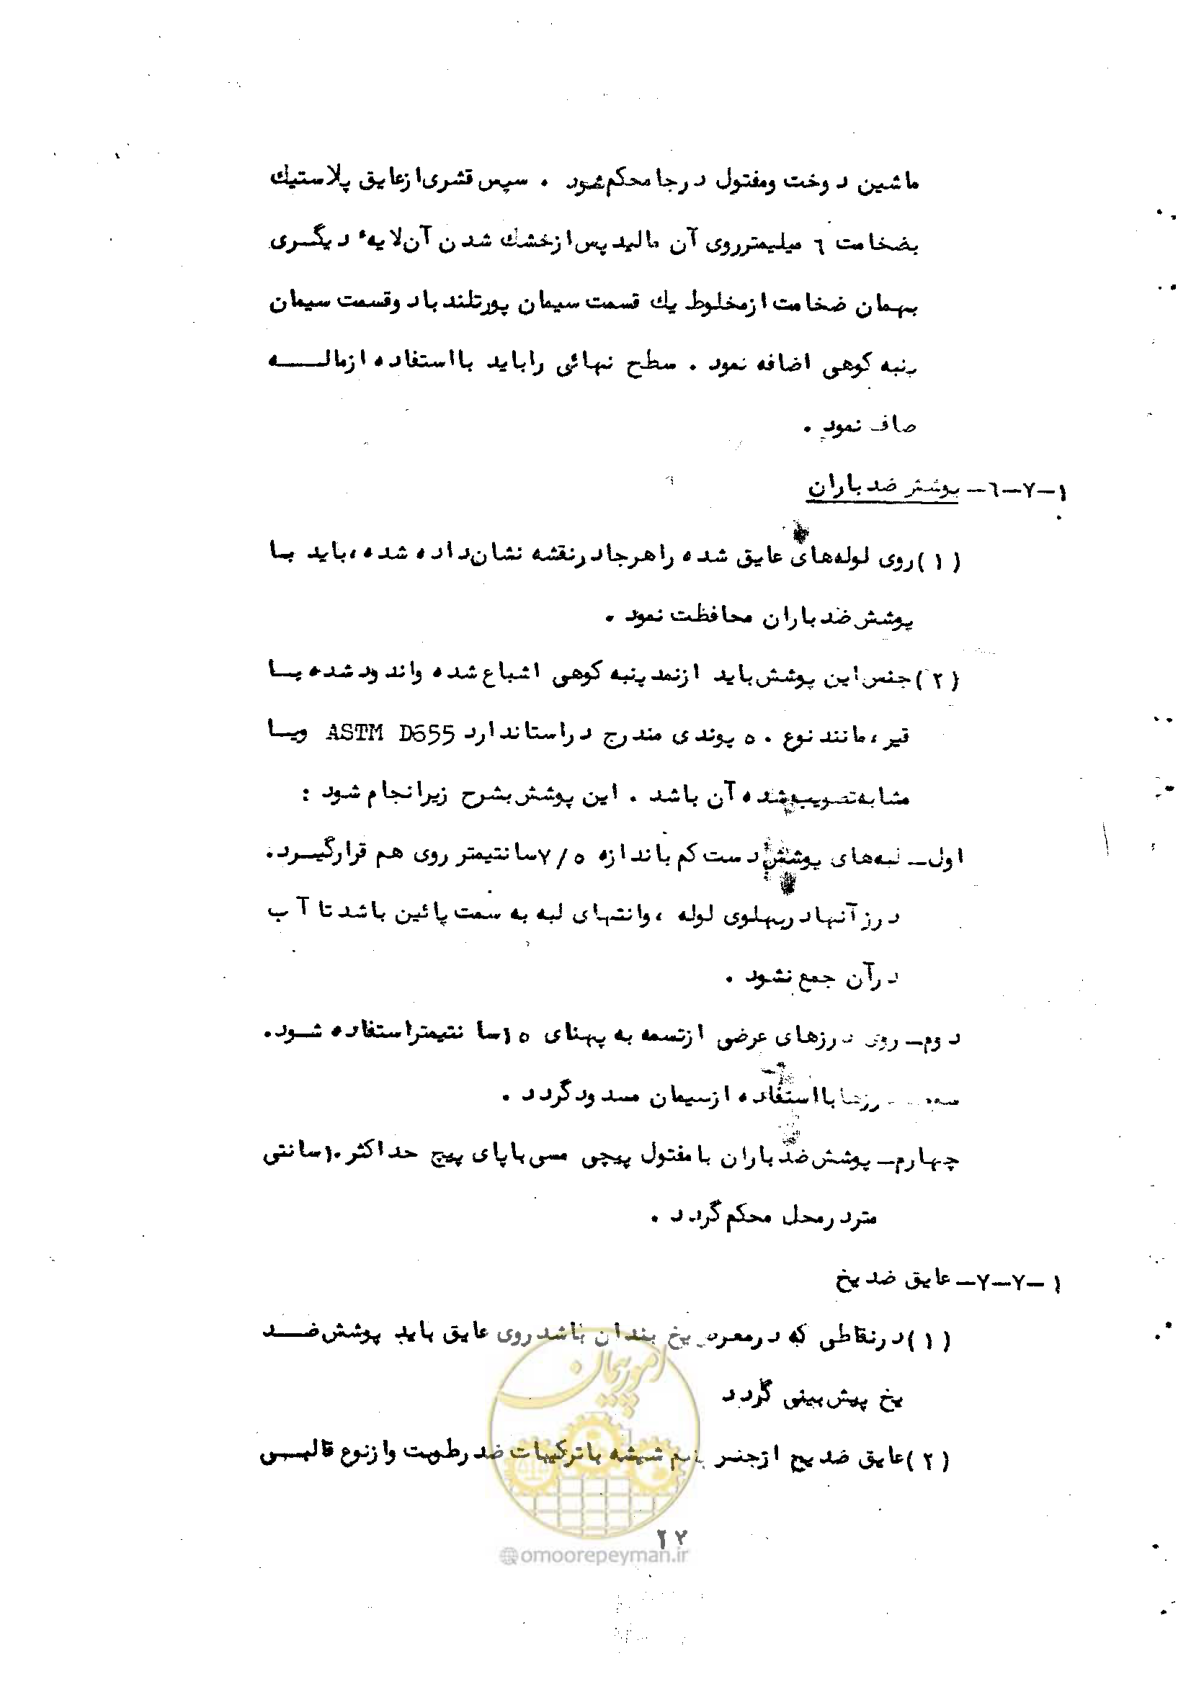 ماشین دوخت ومفتول درجا محکم شود . سپس قشری از عایق پلاستیك
بضخامت ٦ میلیمتر روی آن مالید پس از خشك شدن آن لایهٔ دیگری
بهمان ضخامت از مخلوط یك قسمت سیمان پورتلند با دو قسمت سیمان
پنبه کوهی اضافه نمود . سطح نهائی را باید با استفاده از ماله
صاف نمود .
۱-۷-٦- پوشش ضد باران
(۱) روی لوله‌های عایق شده را هرجا در نقشه نشان داده شده ، باید با
پوشش ضد باران محافظت نمود .
(۲) جنس این پوشش باید از نمد پنبه کوهی اشباع شده و اندود شده با
قیر ، مانند نوع ۵۰ پوندی مندرج در استاندارد ASTM D655 ویا
مشابه تصویب شده آن باشد . این پوشش بشرح زیر انجام شود :
اول- لبه‌های پوشش دست کم باندازه ۷/۵ سانتیمتر روی هم قرار گیرد.
درز آنها در پهلوی لوله ، وانتهای لبه به سمت پائین باشد تا آب
در آن جمع نشود .
دوم- روی درزهای عرضی از تسمه به پهنای ۱۵ سانتیمتر استفاده شود.
درزها با استفاده از سیمان مسدود گردد .
چهارم- پوشش ضد باران با مفتول پیچی مسی با پای پیچ حداکثر ۱۰ سانتی
متر در محل محکم گردد .
۱-۷-۷- عایق ضد یخ
(۱) در نقاطی که در معرض یخ بندان باشد روی عایق باید پوشش ضد
یخ پیش بینی گردد
(۲) عایق ضد یخ از جنس پشم شیشه با ترکیبات ضد رطوبت و از نوع قالبی
امور پیمان
۲۷
@omoorepeyman.ir